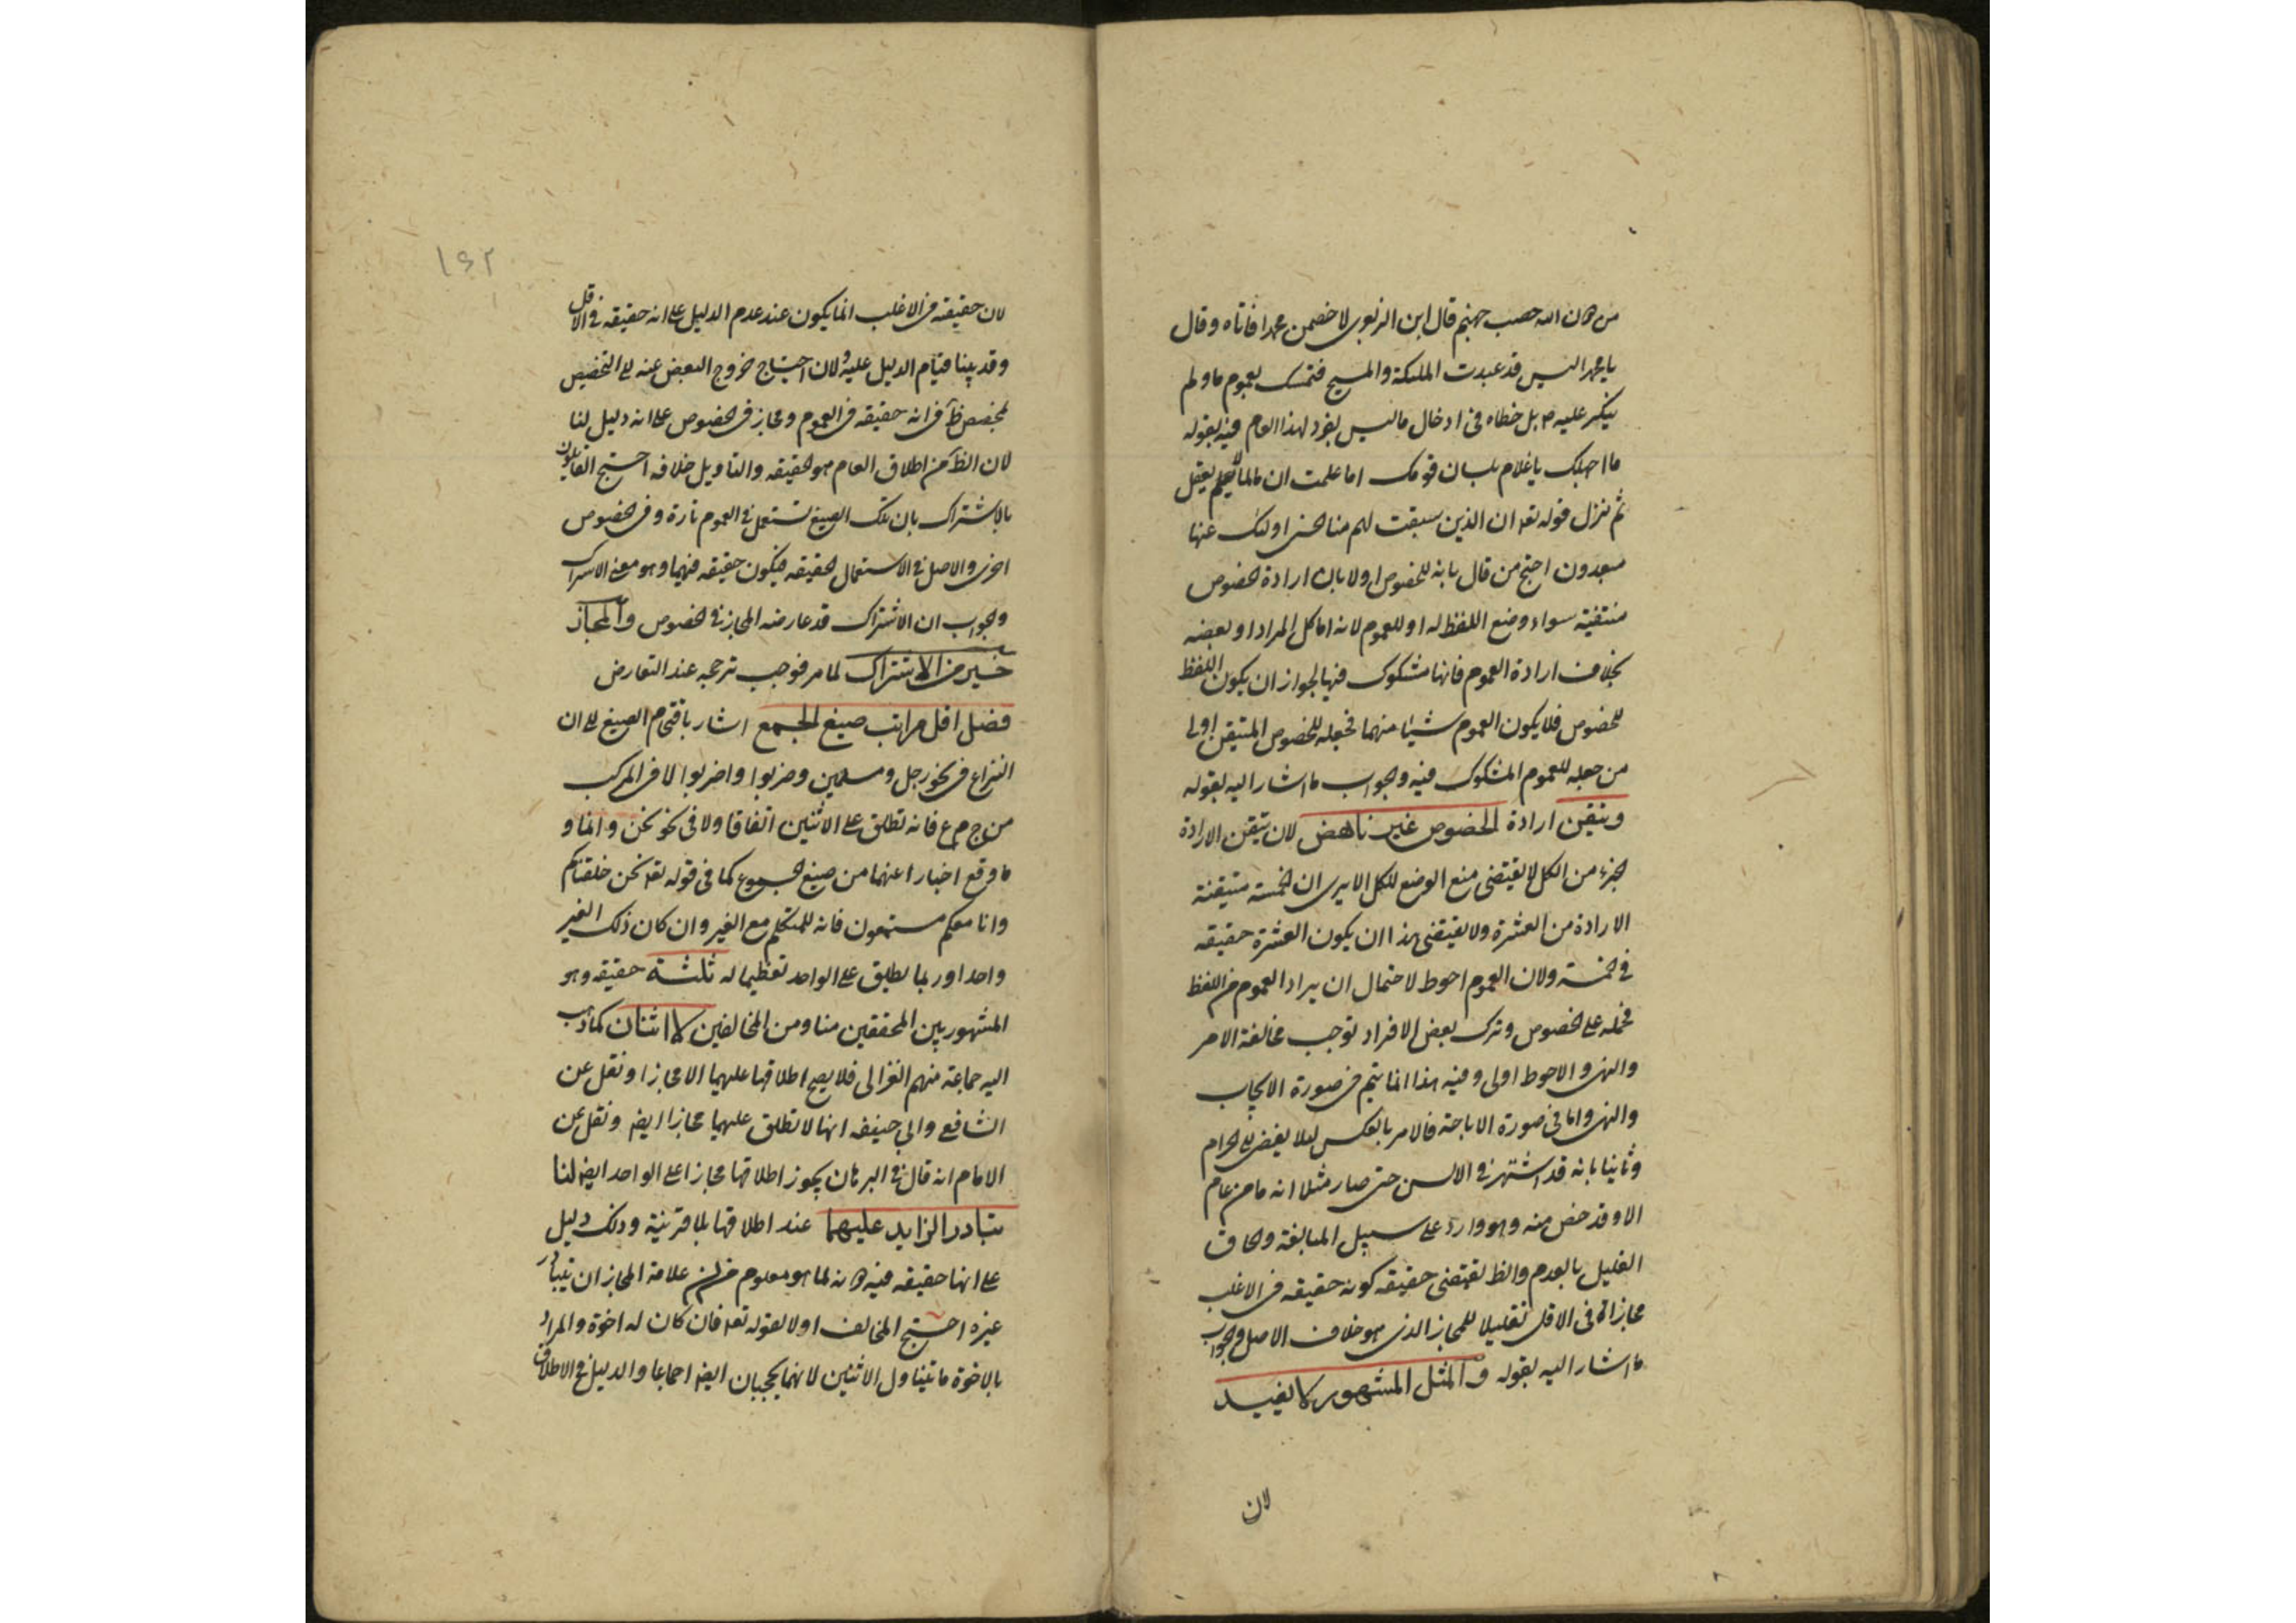 من دون الله حصب جهنم قال ابن الزبعرى لاخصمن محمدا فاتاه وقال
يا محمد اليس قد عبدت الملئكة والمسيح فتمسك بعموم ما ولم
ينكر عليه ص بل خطاه فى ادخال ما ليس بفرد لهذا العام فيه بقوله
ما اجهلك يا غلام بلسان قومك اما علمت ان ما لما لم يعقل
ثم نزل قوله تعه ان الذين سبقت لهم منا الحسنى اولئك عنها
مبعدون احتج من قال بانه للخصوص اولا بان ارادة الخصوص
متيقنة سواء وضع اللفظ له او للعموم لانه اما كل المراد او بعضه
بخلاف ارادة العموم فانها مشكوك فيها لجواز ان يكون اللفظ
للخصوص فلا يكون العموم شيئا منهما فجعله للخصوص المتيقن اولى
من جعله للعموم المشكوك فيه والجواب ما اشار اليه بقوله
وتيقن ارادة الخصوص غير ناهض لان تيقن الارادة
الجزء من الكل لا يقتضى منع الوضع للكل الا يرى ان الخمسة متيقنة
الارادة من العشرة ولا يقتضى هذا ان يكون العشرة حقيقه
فى الخمسة ولان العموم احوط لاحتمال ان يراد العموم من اللفظ
فحمله على الخصوص وترك بعض الافراد توجب مخالفة الامر
والنهى والاحوط اولى وفيه هذا انما يتم فى صورة الايجاب
والنهى واما فى صورة الاباحة فالامر بالعكس لئلا يفضى الى الحرام
وثانيا بانه قد اشتهر فى الالسن حتى صار مثلا انه ما من عام
الا وقد خص منه وهو وارد على سبيل المبالغة والحاق
القليل بالعدم والظ يقتضى حقيقه كونه حقيقه فى الاغلب
مجازا فى الاقل تقليلا للمجاز الذى هو خلاف الاصل والجواب
ما اشار اليه بقوله والمثل المشهور لا يفيد
لان
١٤٢
لان حقيقه فى الاغلب انما يكون عند عدم الدليل على انه حقيقه فى الاقل
وقد بينا قيام الدليل عليه ولان احتياج خروج البعض عنه الى التخصيص
بمخصص ظ فى انه حقيقه فى العموم ومجاز فى الخصوص على انه دليل لنا
لان الظ من اطلاق العام هو الحقيقه والتاويل خلافه احتج القايلون
بالاشتراك بان تلك الصيغ تستعمل فى العموم تارة وفى الخصوص
اخرى والاصل فى الاستعمال الحقيقه فيكون حقيقه فيهما وهو معنى الاشتراك
والجواب ان الاشتراك قد عارضه المجاز فى الخصوص والمجاز
خير من الاشتراك لما مر فوجب ترجحه عند التعارض
فصل اقل مراتب صيغ الجمع اشار باقحام الصيغ الى ان
النزاع فى نحو رجل ومسلمين وضربوا واضربوا لا فى المركب
من ج م ع فانه تطلق على الاثنين اتفاقا ولا فى نحو نحن وانا و
ما وقع اخبارا عنهما من صيغ الجموع كما فى قوله تعه نحن خلقناكم
وانا معكم مستمعون فانه للمتكلم مع الغير وان كان ذلك الغير
واحدا وربما تطلق على الواحد تعظيما له ثلثة حقيقه وهو
المشهور بين المحققين منا ومن المخالفين لا اثنان كما ذهب
اليه جماعة منهم الغزالى فلا يصح اطلاقها عليهما الا مجازا ونقل عن
الشافعى وابى حنيفه انها لا تطلق عليهما مجازا ايضه ونقل عن
الامام انه قال فى البرهان يجوز اطلاقها مجازا على الواحد ايضه لنا
تبادر الزايد عليهما عند اطلاقها بلا قرينة وذلك دليل
على انها حقيقه فيه دونه لما هو معلوم من ان علامة المجاز ان يتبادر
غيره احتج المخالف اولا بقوله تعه فان كان له اخوة والمراد
بالاخوة ما يتناول الاثنين لانهما يحجبان ايضه اجماعا والدليل فى الاطلاق